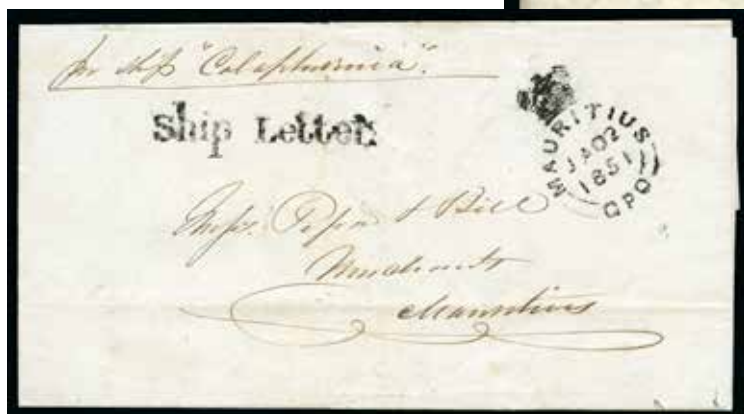 per ship "Colaphurnia".
Ship Letter.
MAURITIUS
JA 02
1851
GPO
Messrs. & Bell
Merchants
Mauritius